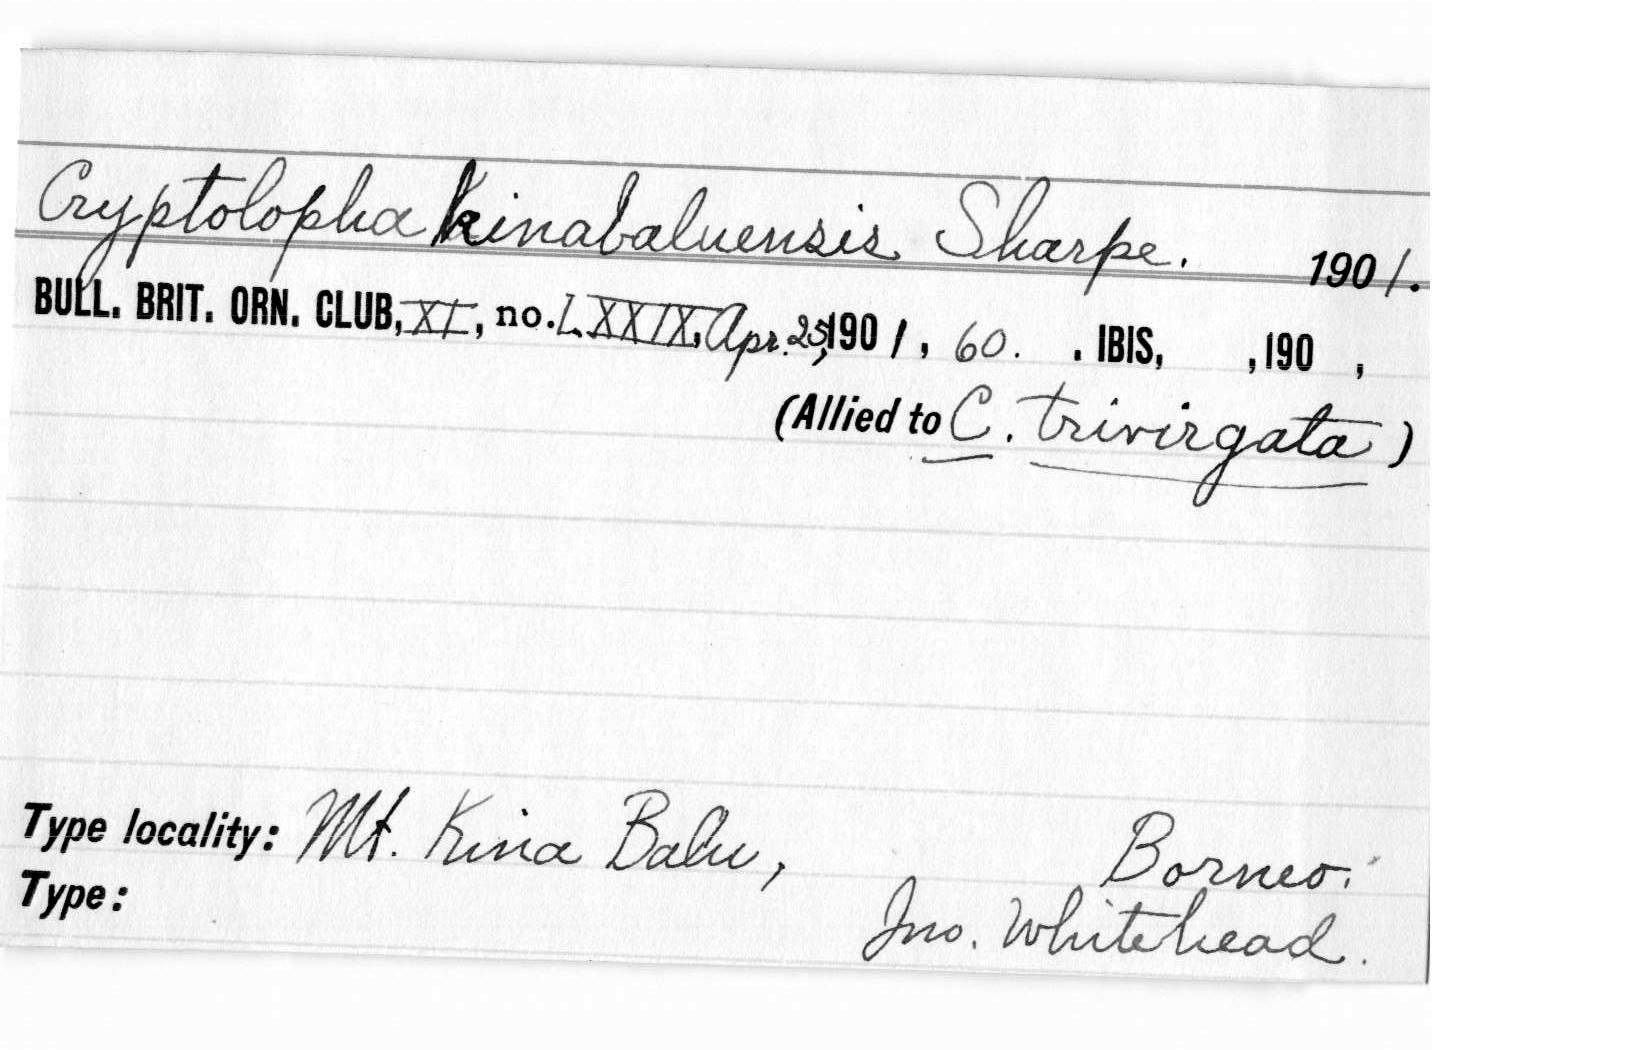 Cryptolopha kinabaluensis Sharpe. 1901.
BULL. BRIT. ORN. CLUB, XI, no. LXXIX, Apr. 25, 1901, 60. . IBIS, , 190 ,
(Allied to C. trivirgata)
Type locality: Mt. Kina Balu, Borneo.
Type: Jno. Whitehead.